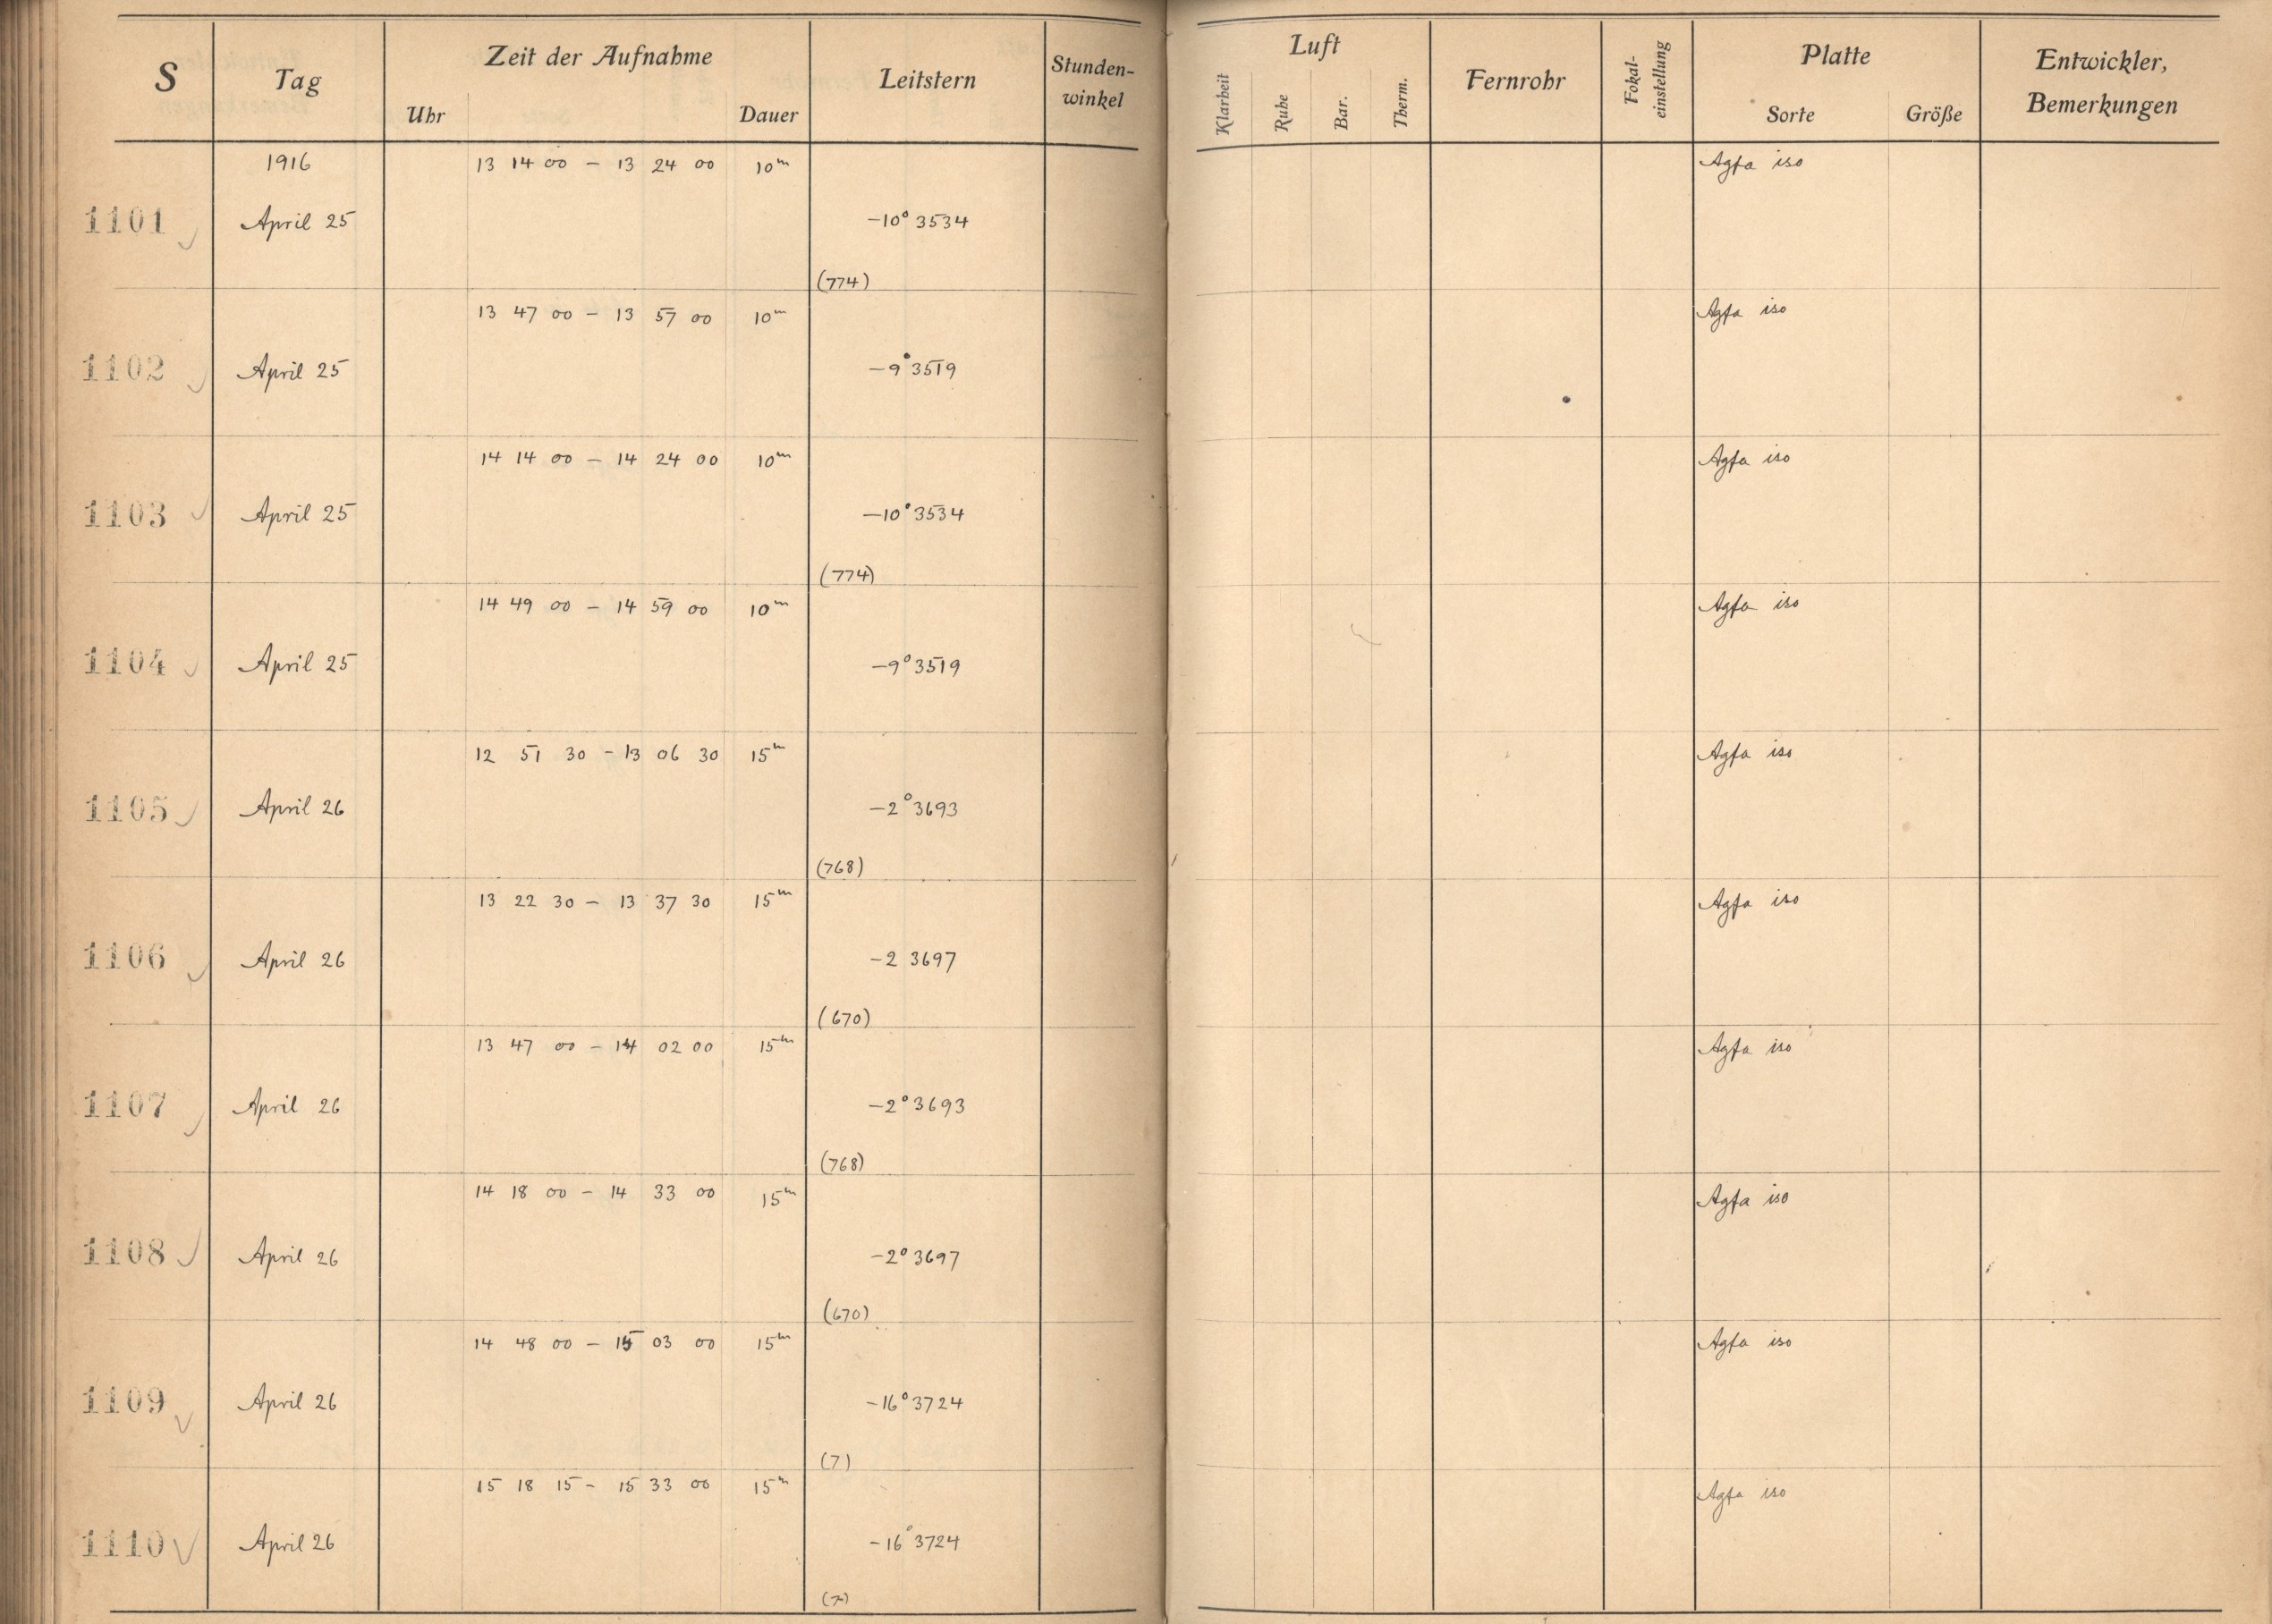 S Tag Zeit der Aufnahme Uhr Dauer Leitstern Stunden-winkel Luft Klarheit Ruhe Bar. Therm. Fernrohr Fokal-einstellung Platte Sorte Größe Entwickler, Bemerkungen
1916 13 14 00 – 13 24 00 10m Agfa iso
1101 April 25 –10° 3534
(774)
13 47 00 – 13 57 00 10m Agfa iso
1102 April 25 –9° 3519
14 14 00 – 14 24 00 10m Agfa iso
1103 April 25 –10° 3534
(774)
14 49 00 – 14 59 00 10m Agfa iso
1104 April 25 –9° 3519
12 51 30 – 13 06 30 15m Agfa iso
1105 April 26 –2° 3693
(768)
13 22 30 – 13 37 30 15m Agfa iso
1106 April 26 –2 3697
(670)
13 47 00 – 14 02 00 15m Agfa iso
1107 April 26 –2° 3693
(768)
14 18 00 – 14 33 00 15m Agfa iso
1108 April 26 –2° 3697
(670)
14 48 00 – 15 03 00 15m Agfa iso
1109 April 26 –16° 3724
(7)
15 18 15 – 15 33 00 15m Agfa iso
1110 April 26 –16° 3724
(7)